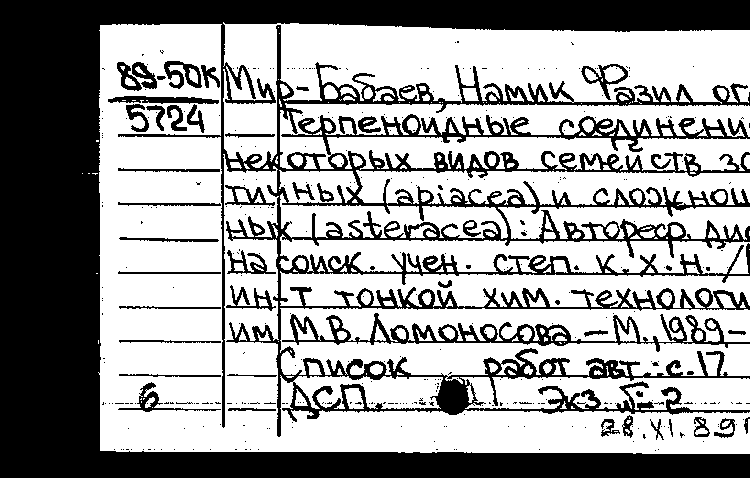 89-50К Мир-Бабаев, Намик Фазил ог
5724 Терпеноидные соединени
некоторых видов семейств зо
тичных (apiacea) и сложноц
ных (asteracea): Автореф. дис
на соиск. учен. степ. к.х.н. /
ин-т тонкой хим. технологи
им. М.В. Ломоносова. – М., 1989 –
Список работ авт.: с. 17.
6 ДСП. Экз. № 2
28.XI.89